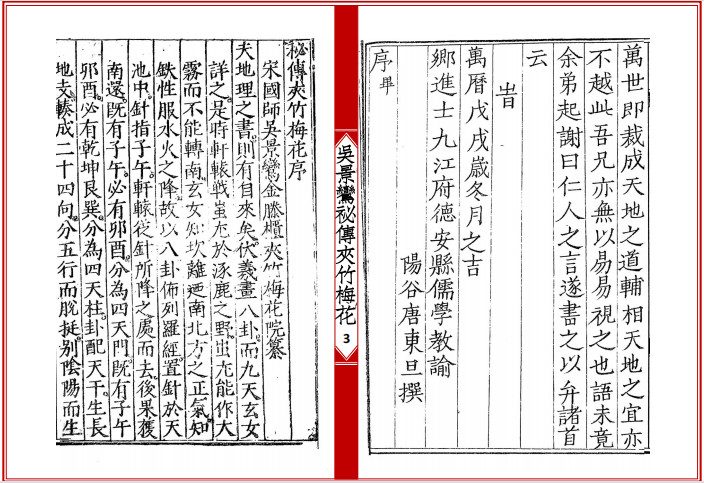 萬世即裁成天地之道輔相天地之宜亦
不越此吾兄亦無以易易視之也語未竟
余弟起謝曰仁人之言遂書之以弁諸首
云
旹
萬曆戊戌歲冬月之吉
鄉進士九江府德安縣儒學教諭
陽谷唐東旦撰
序畢
吳景鸞祕傳夾竹梅花
3
祕傳夾竹梅花序
宋國師吳景鸞金縢櫃夾竹梅花院纂
夫地理之書。則有自來矣。伏羲畫八卦。而九天玄女
詳之。是時軒轅戰蚩尤於涿鹿之野。蚩尤能作大
霧而不能轉南。玄女知坎離廼南北方之正氣。知
鉄性服水火之降。故以八卦佈列羅經。置針於天
池中。針指子午。軒轅從針所降之處而去。後果獲
南還。既有子午。必有卯酉。分為四天門。既有子午
卯酉。必有乾坤艮巽。分為四天柱。卦配天干。生長
地支。輳成二十四向。分五行而脫挺。別陰陽而生